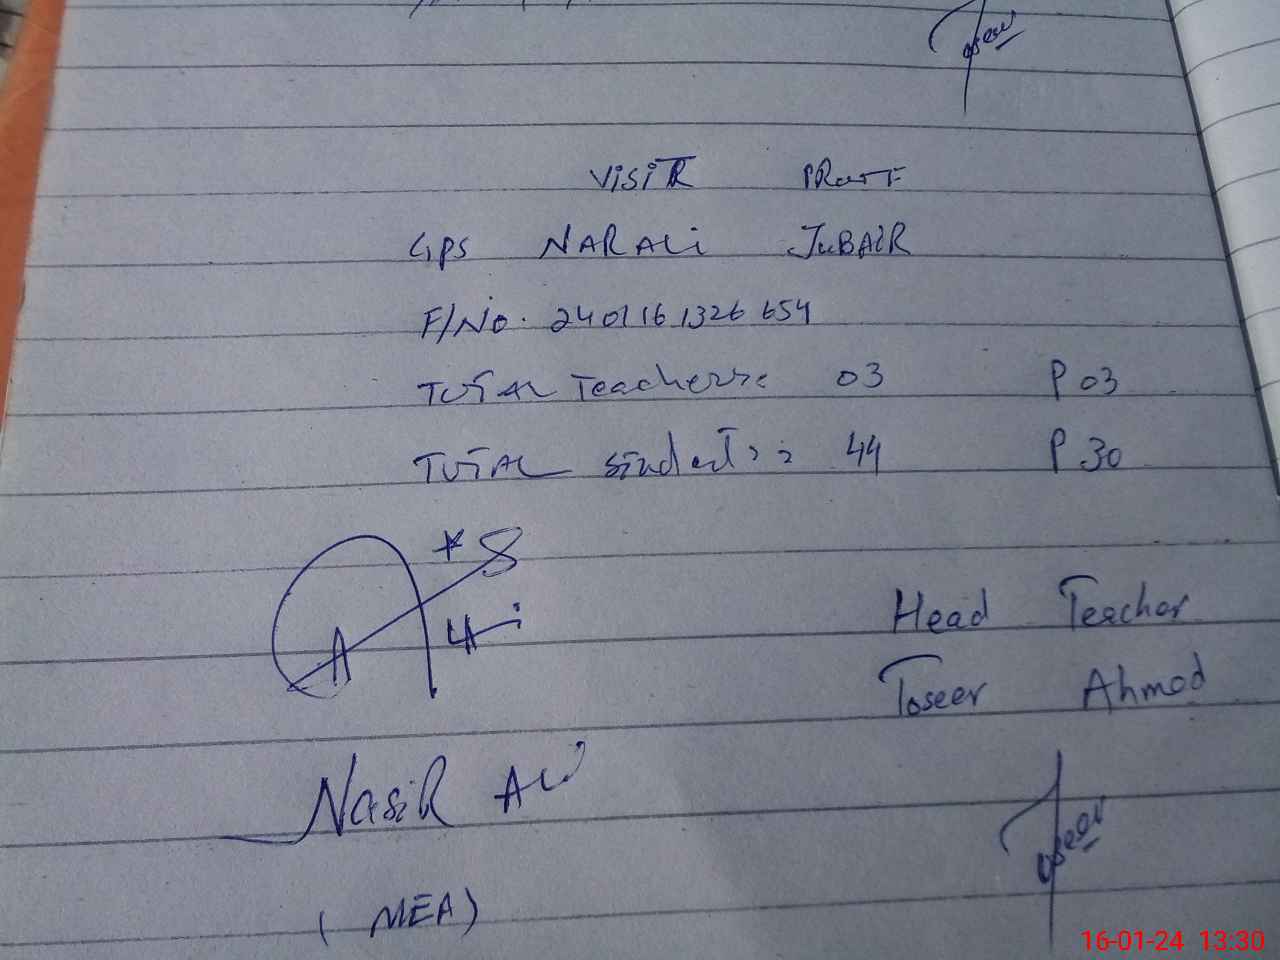 Toseer
VISIT PROOF
GPS NARALI JUBAIR
F/No. 240116 1326 654
TOTAL Teachers: 03 P 03
TOTAL Student: 44 P 30
Head Teacher
Toseer Ahmad
NasiR Ali
Toseer
(MEA)
16-01-24 13:30